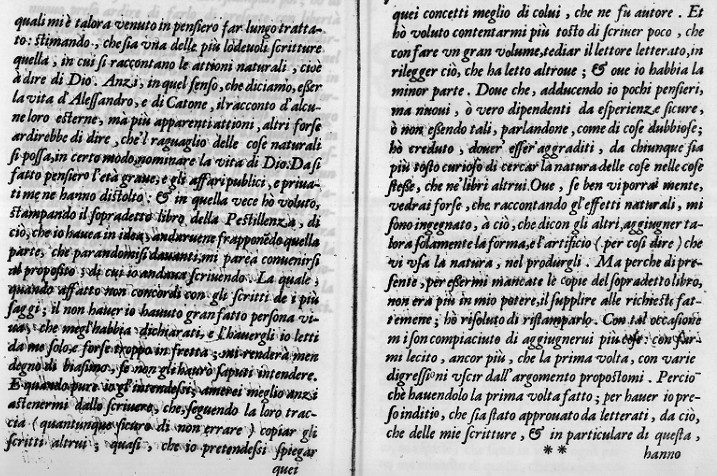 quali mi è talora venuto in pensiero far lungo tratta-
to: stimando, che sia vna delle più lodeuoli scritture
quella, in cui si raccontano le attioni naturali, cioè
à dire di Dio. Anzi, in quel senso, che diciamo, esser
la vita d'Alessandro, e di Catone, il racconto d'alcu-
ne loro esterne, ma più apparenti attioni, altri forse
ardirebbe di dire, che'l raguaglio delle cose naturali
si possa, in certo modo, nominare la vita di Dio. Da si
fatto pensiero l'età graue, e gli affari publici, e priua-
ti me ne hanno distolto: & in quella vece hò voluto,
stampando il sopradetto libro della Pestillenza, di
ciò, che io hauea in idea, andarune frapponēdo quella
parte, che parandomisi dauanti, mi parea conuenirsi
al proposito, di cui io andaua scriuendo. La quale,
quando affatto non concordi con gli scritti de i più
saggi; il non hauer io hauuto gran fatto persona vi-
ua, che megl'habbia dichiarati, e l'hauergli io letti
da me solo, e forse troppo in fretta; mi renderà men
degno di biasimo, se non gli haurò saputi intendere.
E quando pure io gl'intendessi; amerei meglio anzi
astenermi dallo scriuere, che, seguendo la loro trac-
cia (quantunque sicuro di non errare) copiar gli
scritti altrui; quasi, che io pretendessi spiegar
quei
quei concetti meglio di colui, che ne fu autore. Et
hò voluto contentarmi più tosto di scriuer poco, che
con fare vn gran volume, tediar il lettore letterato, in
rilegger ciò, che ha letto altroue; & oue io habbia la
minor parte. Doue che, adducendo io pochi pensieri,
ma nuoui, ò vero dipendenti da esperienze sicure,
ò non essendo tali, parlandone, come di cose dubbiose;
hò creduto, douer esser aggraditi, da chiunque sia
più tosto curioso di cercar la natura delle cose nelle cose
stesse, che ne' libri altrui. Oue, se ben vi porrai mente,
vedrai forse, che, raccontando gl'effetti naturali, mi
sono ingegnato, à ciò, che dicon gli altri, aggiugner ta-
lora solamente la forma, e l'artificio (per così dire) che
vi vsa la natura, nel produrgli. Ma perche di pre-
sente, per essermi mancate le copie del sopradetto libro,
non era più in mio potere, il supplire alle richieste fat-
temene; hò risoluto di ristamparlo. Con tal occasione
mi son compiaciuto di aggiugnerui più cose: con far-
mi lecito, ancor più, che la prima volta, con varie
digressioni vscir dall'argomento propostomi. Percio-
chè hauendolo la prima volta fatto; per hauer io pre-
so inditio, che sia stato approuato da letterati, da ciò,
che delle mie scritture, & in particulare di questa,
** hanno